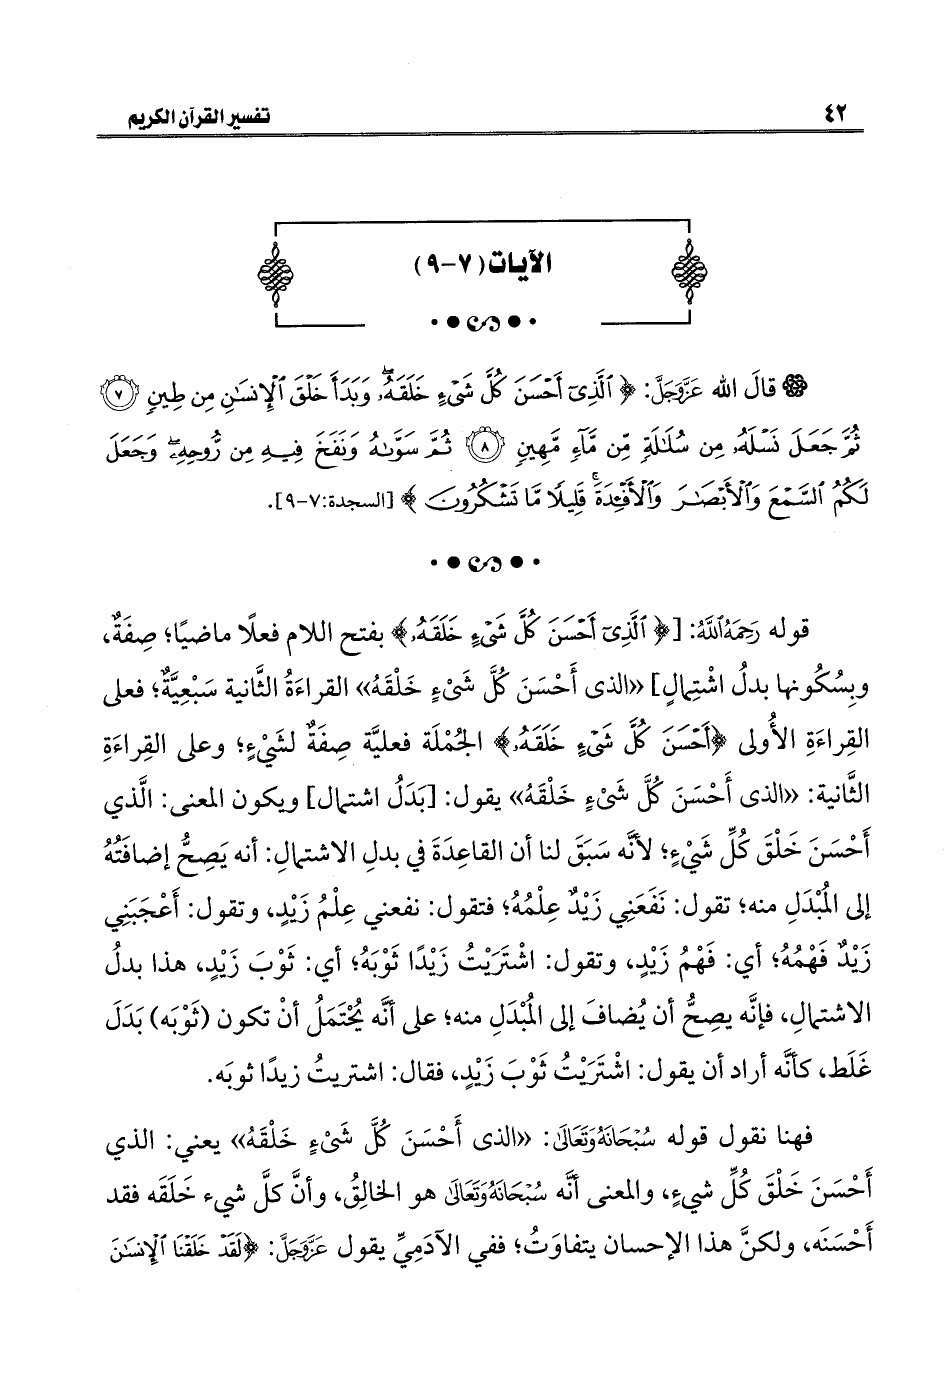 ٤٢
تفسير القرآن الكريم
الآيات (٧-٩)
قالَ الله عَزَّوَجَلَّ: ﴿ ٱلَّذِىٓ أَحْسَنَ كُلَّ شَىْءٍ خَلَقَهُۥ ۖ وَبَدَأَ خَلْقَ ٱلْإِنسَٰنِ مِن طِينٍ ۝٧
ثُمَّ جَعَلَ نَسْلَهُۥ مِن سُلَٰلَةٍ مِّن مَّآءٍ مَّهِينٍ ۝٨ ثُمَّ سَوَّىٰهُ وَنَفَخَ فِيهِ مِن رُّوحِهِۦ ۖ وَجَعَلَ
لَكُمُ ٱلسَّمْعَ وَٱلْأَبْصَٰرَ وَٱلْأَفْـِٔدَةَ ۚ قَلِيلًا مَّا تَشْكُرُونَ ﴾ [السجدة:٧-٩].
قوله رَحِمَهُ ٱللَّهُ: [﴿ ٱلَّذِىٓ أَحْسَنَ كُلَّ شَىْءٍ خَلَقَهُۥ﴾ بفتح اللام فعلًا ماضيًا؛ صِفَةٌ،
وبِسُكُونها بدلُ اشْتِمالٍ] «الذى أَحْسَنَ كُلَّ شَىْءٍ خَلْقَهُ» القراءةُ الثَّانية سَبْعِيَّةٌ؛ فعلى
القِراءَةِ الأُولى ﴿أَحْسَنَ كُلَّ شَىْءٍ خَلَقَهُۥ﴾ الجُمْلَة فعليَّة صِفَةٌ لشَيْءٍ؛ وعلى القِراءَةِ
الثَّانية: «الذى أَحْسَنَ كُلَّ شَىْءٍ خَلْقَهُ» يقول: [بَدَلُ اشتمال] ويكون المعنى: الَّذي
أَحْسَنَ خَلْقَ كُلِّ شَيْءٍ؛ لأنَّه سَبَقَ لنا أن القاعِدَةَ في بدلِ الاشتمالِ: أنه يَصِحُّ إضافَتُهُ
إلى المُبْدَلِ منه؛ تقول: نَفَعَنِي زَيْدٌ عِلْمُهُ؛ فتقول: نفعني عِلْمُ زَيْدٍ، وتقول: أَعْجَبَنِي
زَيْدٌ فَهْمُهُ؛ أي: فَهْمُ زَيْدٍ، وتقول: اشْتَرَيْتُ زَيْدًا ثوبَهُ؛ أي: ثَوْبَ زَيْدٍ، هذا بدلُ
الاشتمالِ، فإنَّه يصِحُّ أن يُضافَ إلى المُبْدَلِ منه؛ على أنَّه يُحْتَمَلُ أنْ تكون (ثَوْبَه) بَدَلَ
غَلَط، كأنَّه أراد أن يقول: اشْتَرَيْتُ ثَوْبَ زَيْدٍ، فقال: اشتريتُ زيدًا ثوبَه.
فهنا نقول قوله سُبْحَانَهُ وَتَعَالَىٰ: «الذى أَحْسَنَ كُلَّ شَىْءٍ خَلْقَهُ» يعني: الذي
أَحْسَنَ خَلْقَ كُلِّ شيءٍ، والمعنى أنَّه سُبْحَانَهُ وَتَعَالَىٰ هو الخالِقُ، وأنَّ كلَّ شيء خَلَقَه فقد
أَحْسَنَه، ولكنَّ هذا الإحسان يتفاوَتُ؛ ففي الآدَمِيِّ يقول عَزَّوَجَلَّ: ﴿لَقَدْ خَلَقْنَا ٱلْإِنسَٰنَ